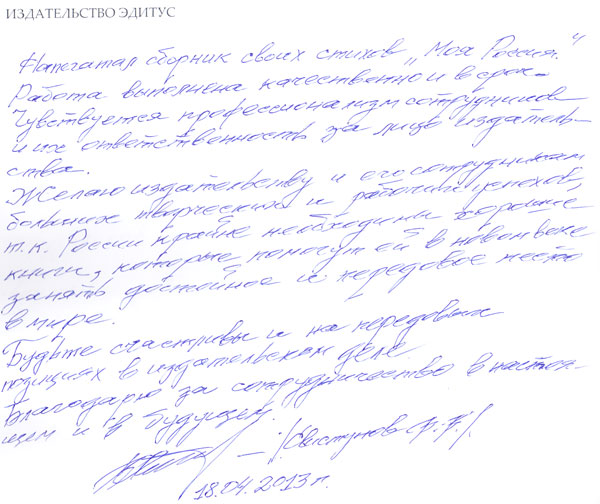 ИЗДАТЕЛЬСТВО ЭДИТУС
Напечатал сборник своих стихов „Моя Россия."
Работа выполнена качественно и в срок.
Чувствуется профессионализм сотрудников
и их ответственность за лицо издатель-
ства.
Желаю издательству и его сотрудникам
больших творческих и рабочих успехов,
т.к. России крайне необходимы хорошие
книги, которые помогут ей в новом веке
занять достойное и передовое место
в мире.
Будьте счастливы и на передовых
позициях в издательском деле.
Благодарю за сотрудничество в настоя-
щем и в будущем.
/Свистунов
18.04.2013 г.